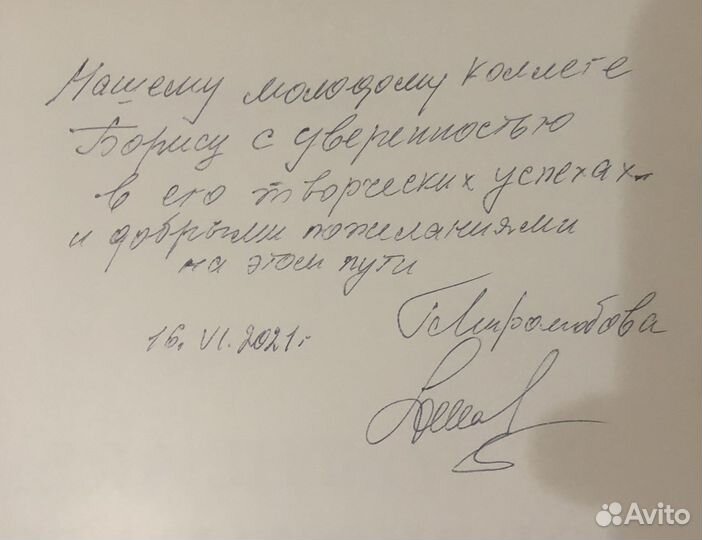 Нашему молодому коллеге
Борису с уверенностью
в его творческих успехах
и добрыми пожеланиями
на этом пути
16. VI. 2021г.
Avito